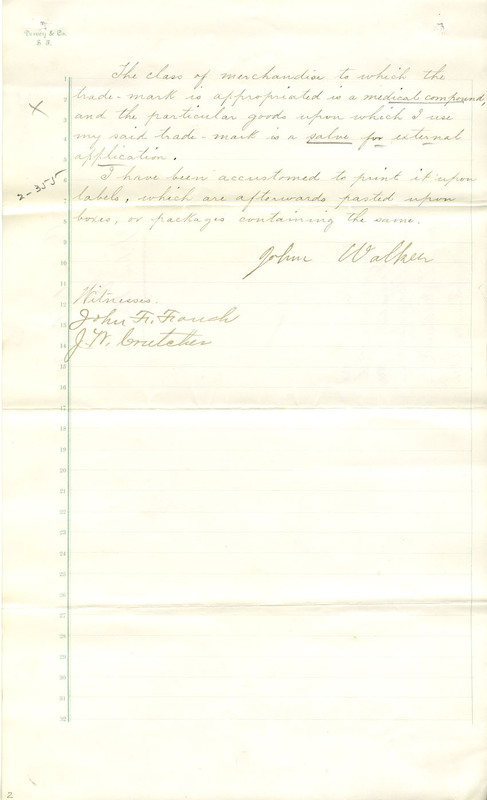 & Co.
3
The class of merchandise to which the
trade-mark is appropriated is a medical compound,
X
and the particular goods upon which I use
my said trade-mark is a salve for external
application.
2-355
I have been accustomed to print it upon
labels, which are afterwards pasted upon
boxes, or packages containing the same.
John Walker
Witnesses.
John F. French
J. W. Crutcher
1
2
3
4
5
6
7
8
9
10
11
12
13
14
15
16
17
18
19
20
21
22
23
24
25
26
27
28
29
30
31
32
2